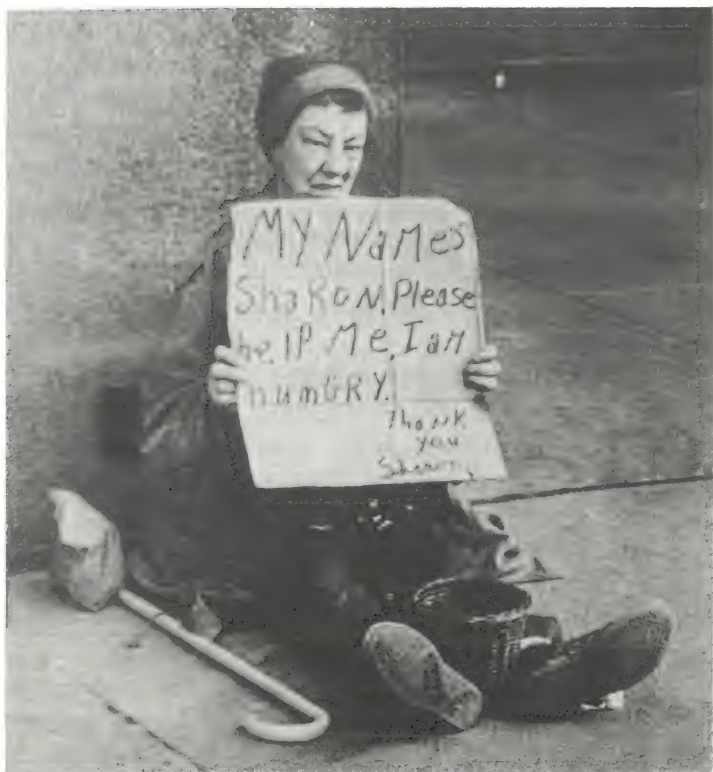 MY NaMes
ShaRoN. Please
he.lP Me. I am
hunGRY.
ThaNK
you
Sharon,